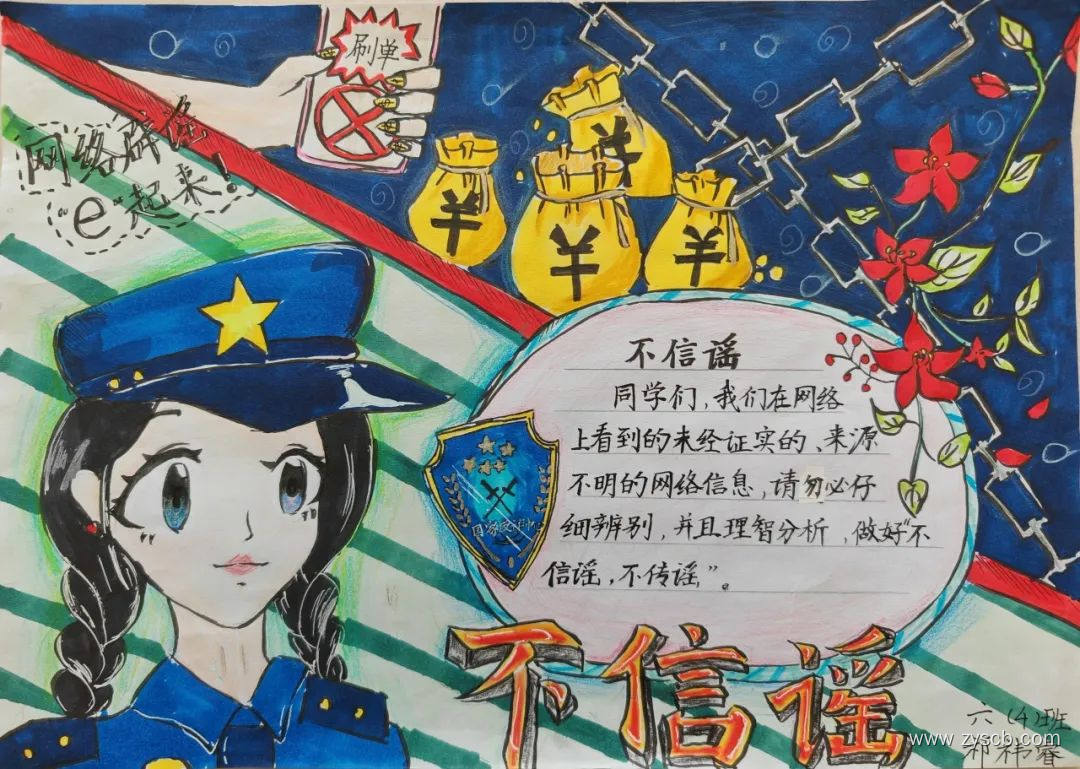 刷单
网络辟谣
“e”起来！
¥
¥
¥
¥
不信谣
同学们，我们在网络
上看到的未经证实的、来源
不明的网络信息，请勿必仔
细辨别，并且理智分析，做好“不
信谣，不传谣”。
不信谣
六（4）班
www.zyscb.com